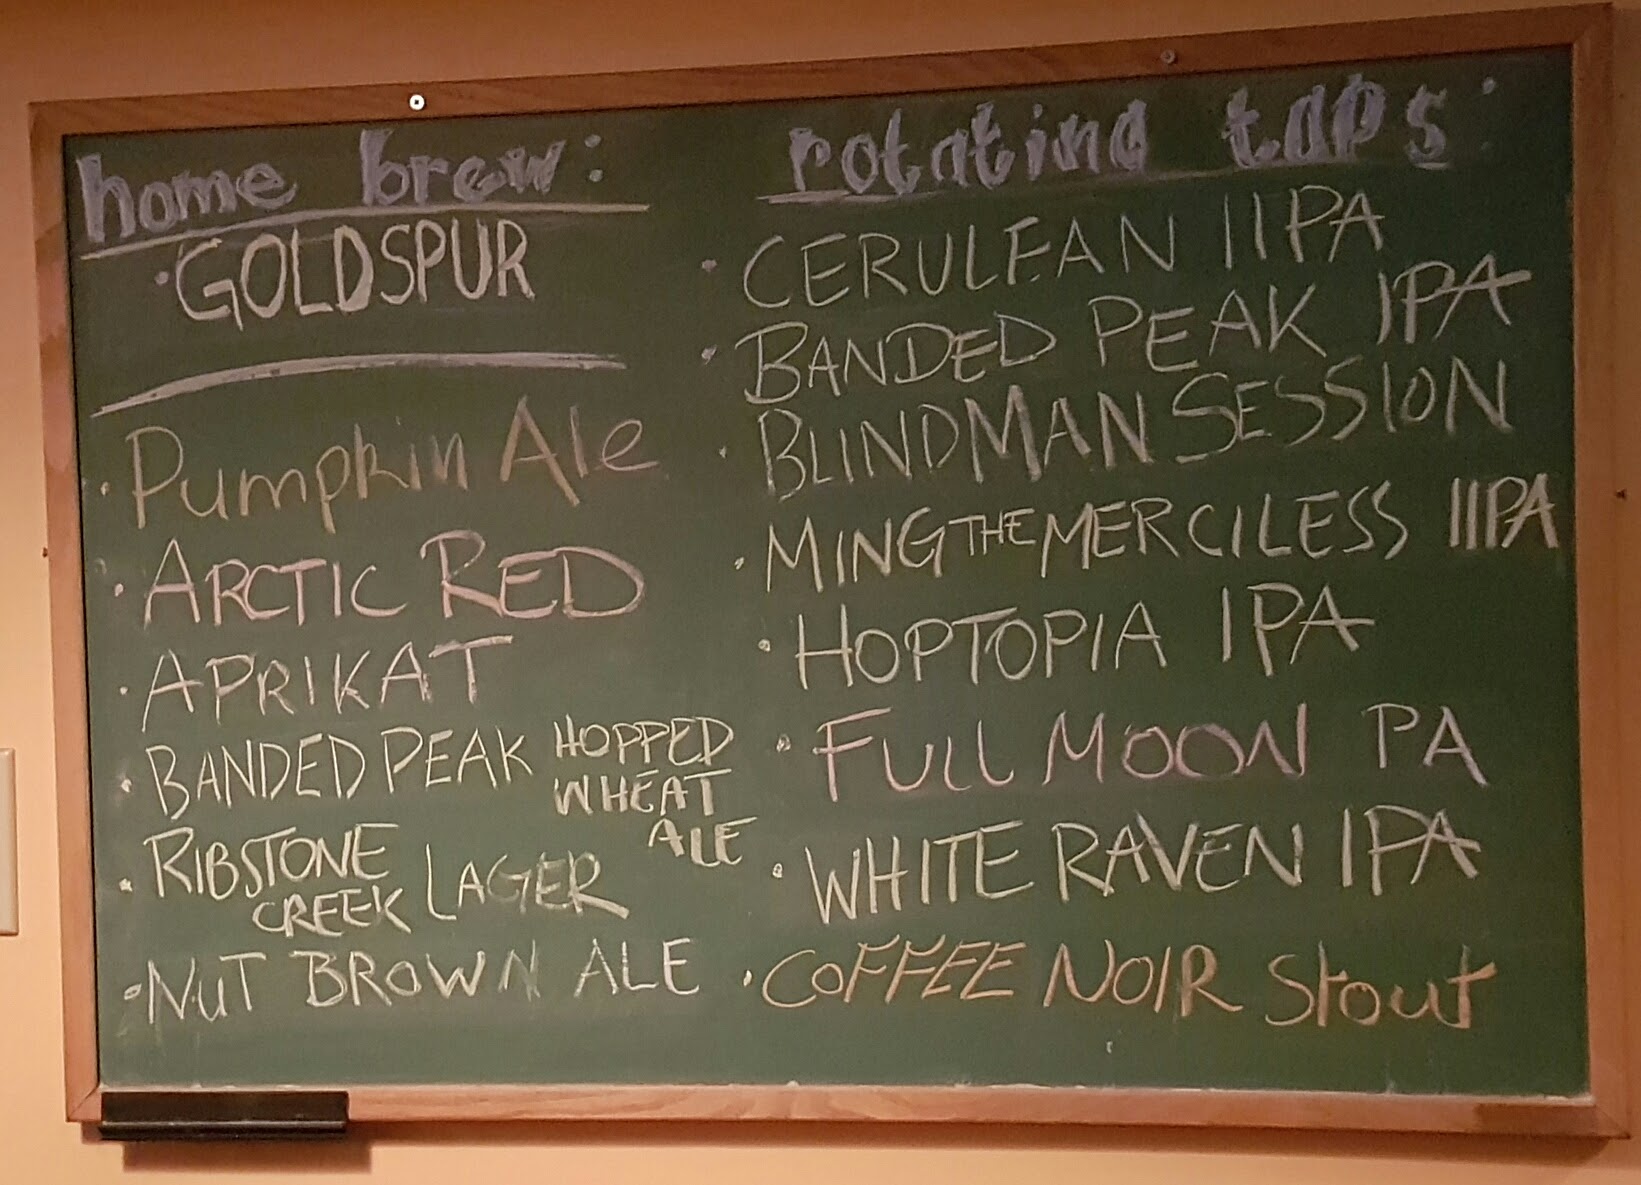 home brew:
• GOLDSPUR
• Pumpkin Ale
• ARCTIC RED
• APRIKAT
• BANDED PEAK HOPPED
WHEAT
ALE
• RIBSTONE
CREEK LAGER
• NUT BROWN ALE
rotating taps:
• CERULEAN IIPA
• BANDED PEAK IPA
• BLINDMAN SESSION
• MING THE MERCILESS IIIPA
• HOPTOPIA IPA
• FULL MOON PA
• WHITE RAVEN IPA
• COFFEE NOIR Stout